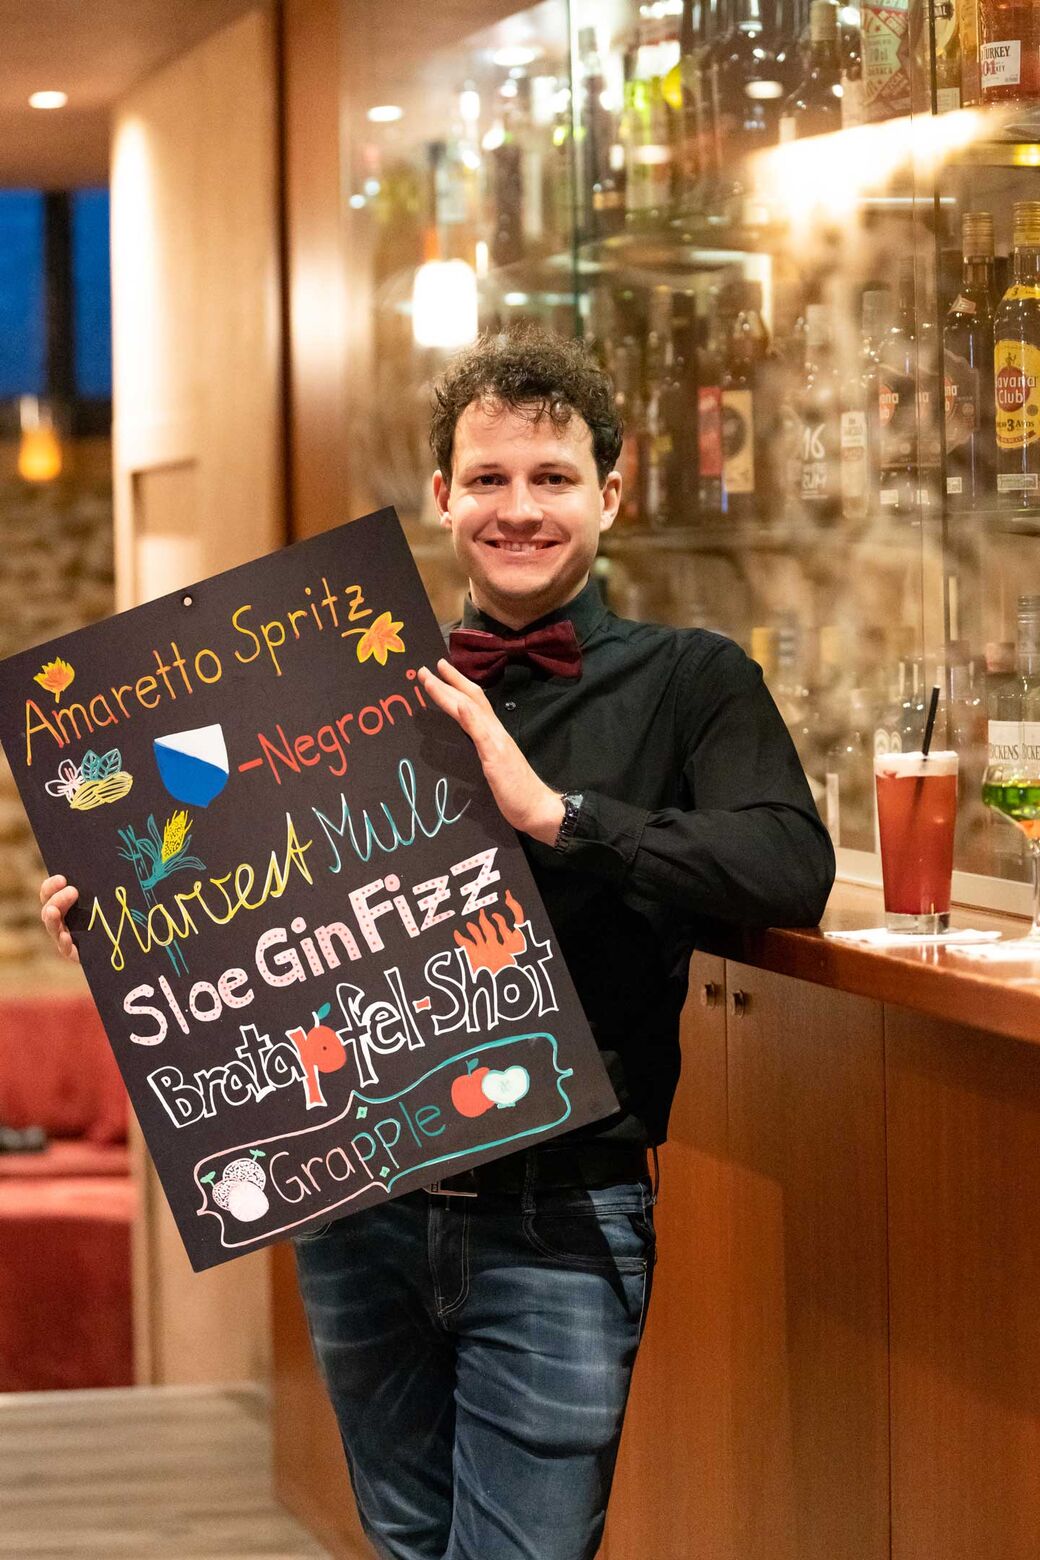 Amaretto Spritz
-Negroni
Harvest Mule
Sloe Gin Fizz
Bratapfel-Shot
Grapple
TURKEY
101
avana
Club
3